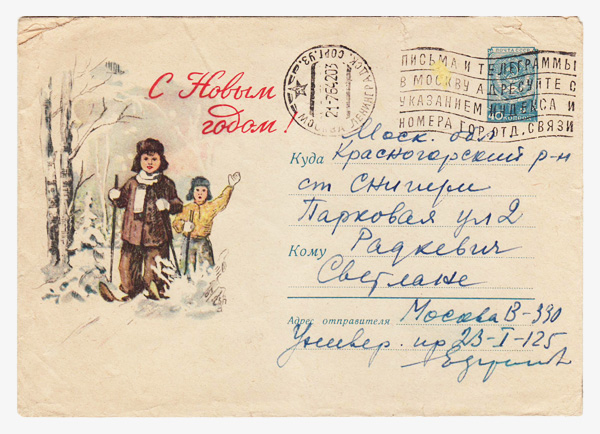 С Новым
годом!
МОСКВА
ПОЧТА СССР
40
ПИСЬМА И ТЕЛЕГРАММЫ
В МОСКВУ АДРЕСУЙТЕ С
УКАЗАНИЕМ ИНДЕКСА И
НОМЕРА ГОР.ОТД. СВЯЗИ
Моск. обл
Куда Красногорский р-н
ст Снигири
Парковая ул 2
Кому Радкевич
Светлане
Адрес отправителя Москва В-330
Универ. пр 23-I-125